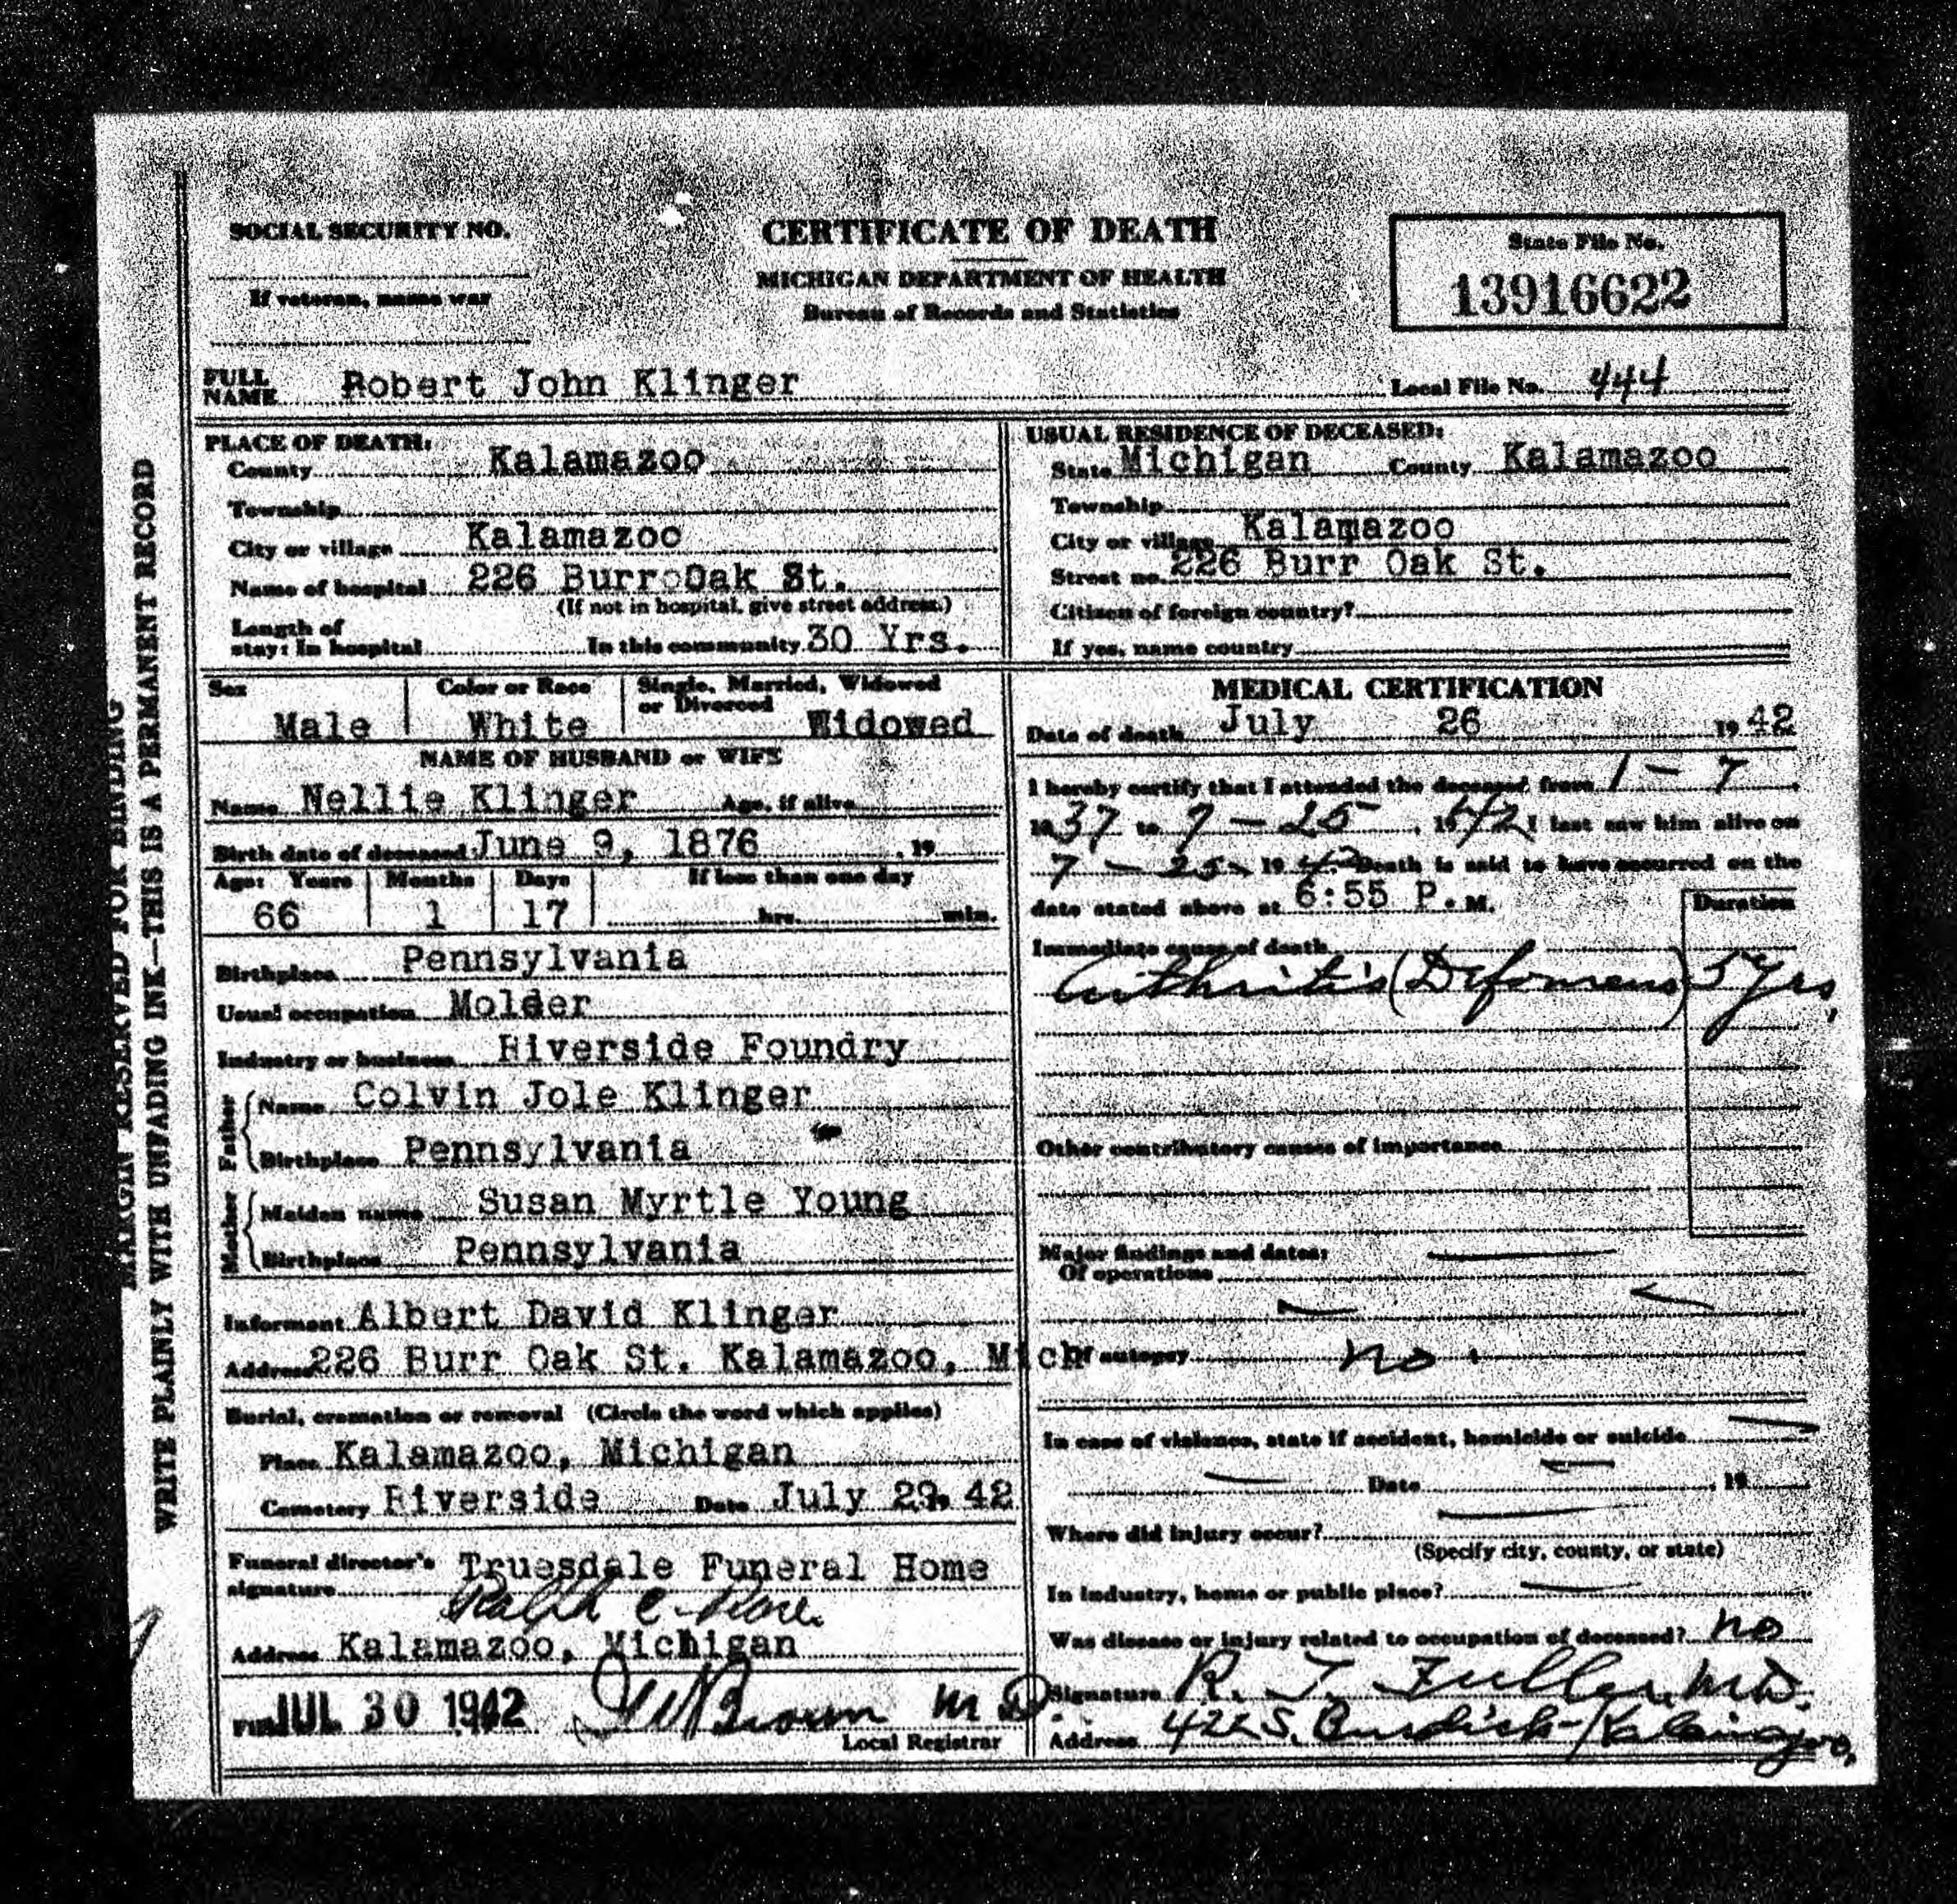 SOCIAL SECURITY NO.
If veteran, name war
CERTIFICATE OF DEATH
MICHIGAN DEPARTMENT OF HEALTH
Bureau of Records and Statistics
State File No.
13916622
FULL NAME Robert John Klinger
Local File No. 444
PLACE OF DEATH:
County Kalamazoo
Township
City or village Kalamazoo
Name of hospital 226 Burr Oak St.
(If not in hospital, give street address.)
Length of stay: In hospital In this community 30 Yrs.
USUAL RESIDENCE OF DECEASED:
State Michigan County Kalamazoo
Township
City or village Kalamazoo
Street no. 226 Burr Oak St.
Citizen of foreign country?
If yes, name country
Sex Male
Color or Race White
Single, Married, Widowed or Divorced Widowed
NAME OF HUSBAND or WIFE
Name Nellie Klinger Age, if alive
Birth date of deceased June 9, 1876 , 19
Age: Years Months Days If less than one day
66 1 17 hrs. min.
Birthplace Pennsylvania
Usual occupation Molder
Industry or business Riverside Foundry
Father
Name Colvin Jole Klinger
Birthplace Pennsylvania
Mother
Maiden name Susan Myrtle Young
Birthplace Pennsylvania
Informant Albert David Klinger
Address 226 Burr Oak St. Kalamazoo, Mich
Burial, cremation or removal (Circle the word which applies)
Place Kalamazoo, Michigan
Cemetery Riverside Date July 29, 42
Funeral director's signature Truesdale Funeral Home
Ralph C.
Address Kalamazoo, Michigan
Filed JUL 30 1942 Brown M D.
Local Registrar
MEDICAL CERTIFICATION
Date of death July 26 19 42
I hereby certify that I attended the deceased from 1 - 7
1937 to 7 - 25, 1942 I last saw him alive on
7 - 25 - 1942 Death is said to have occurred on the
date stated above at 6:55 P. M.
Duration
Immediate cause of death
Arthritis (Deformens) 5 yrs,
Other contributory causes of importance
Major findings and dates:
Of operations
Of autopsy no
In case of violence, state if accident, homicide or suicide
Date , 19
Where did injury occur?
(Specify city, county, or state)
In industry, home or public place?
Was disease or injury related to occupation of deceased? no
Signature R. J. Fuller, M.D.
Address 422 S. Burdick - Kalamazoo,
MARGIN RESERVED FOR BINDING
WRITE PLAINLY WITH UNFADING INK—THIS IS A PERMANENT RECORD